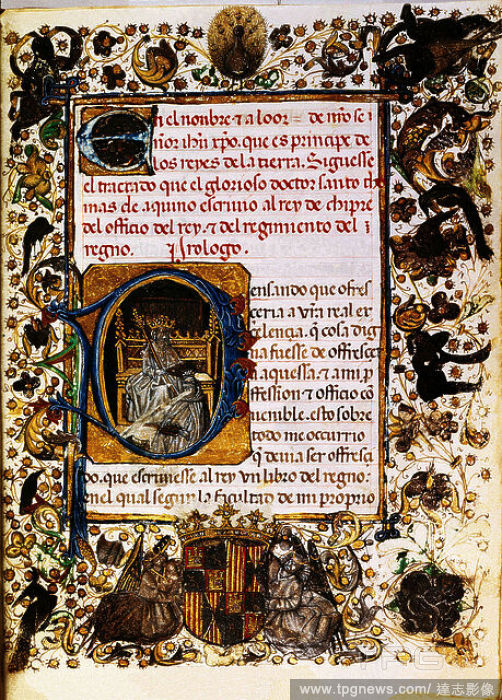 En el nonbre ⁊ a loor = de nr̃o se ı
ñor ihũ xp̃o. que es principe de
los reyes de la tierra. Siguesse
el tractado que el glorioso doctor santo tho
mas de aquino escriuio al rey de chipre
del officio del rey. ⁊ del regimiento del ı
regno. Prologo.
Pensando que ofres
ceria a vr̃a real ex
celencia. q̃ cosa dig
na fuesse de offrescer
a aquessa. ⁊ a mi p
ffession ⁊ officio cõ
uenible. esto sobre
todo me occurrio
q̃ deuia ser offresci
do. que escriuiesse al rey vn libro del regno:
en el qual segun la facultad de mi proprio
www.tpgnews.com/ 達志影像